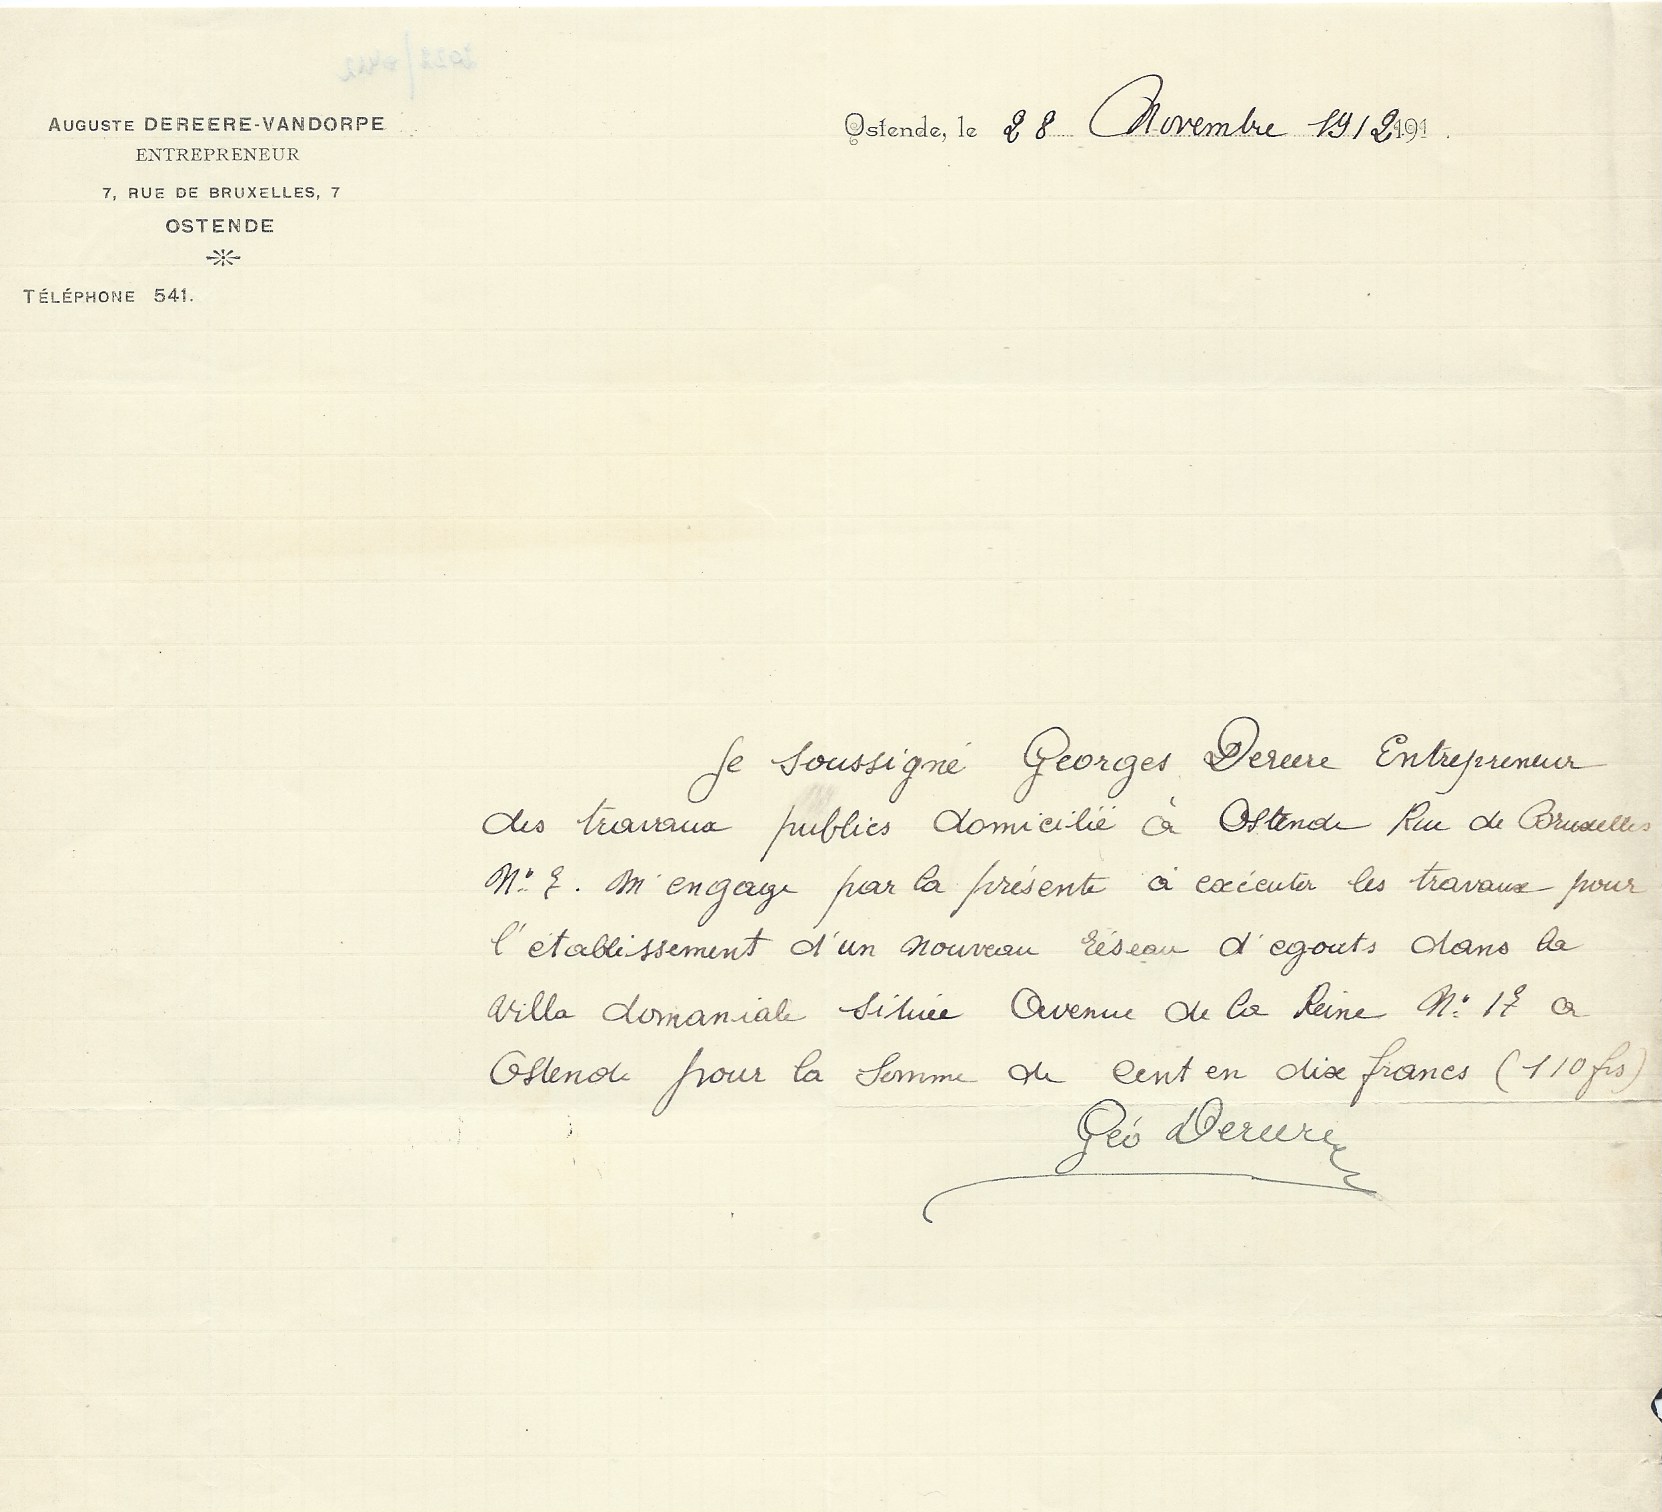 AUGUSTE DEREERE-VANDORPE
ENTREPRENEUR
7, RUE DE BRUXELLES, 7
OSTENDE
TÉLÉPHONE 541.
Ostende, le 28 Novembre 1912 191 .
Je soussigné Georges Dereere Entrepreneur
des travaux publics domicilié à Ostende Rue de Bruxelles
N° 7. M'engage par la présente à exécuter les travaux pour
l'établissement d'un nouveau réseau d'egouts dans la
Villa domaniale située Avenue de la Reine N° 17 a
Ostende pour la Somme de cent en dix francs (110 frs)
Géo Dereere